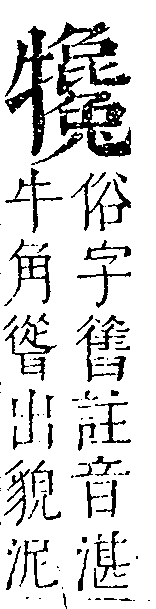 俗字舊註音湛
牛角聳出貌泥